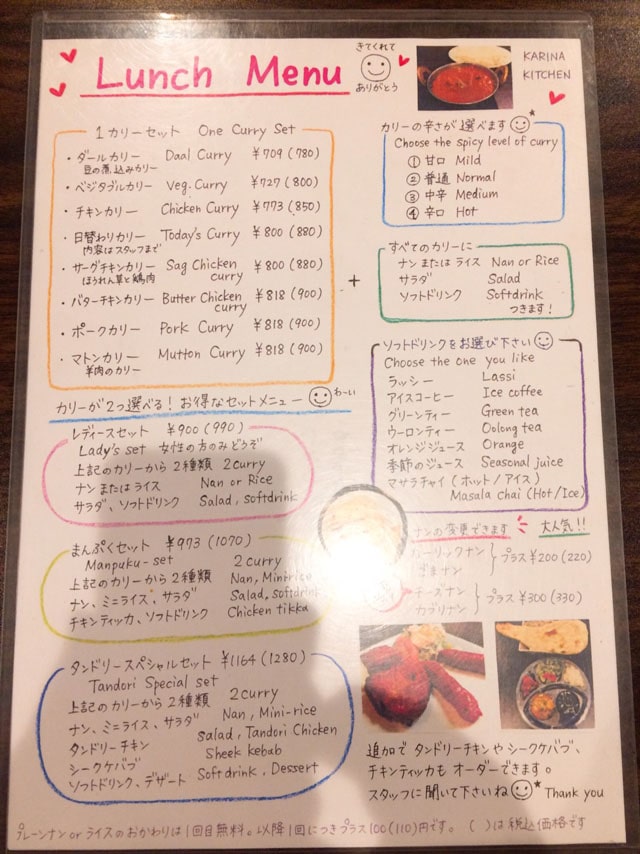 Lunch Menu
きてくれて
ありがとう
KARINA
KITCHEN
1カリーセット One Curry Set
・ダールカリー Daal Curry ¥709(780)
豆の煮込みカリー
・ベジタブルカリー Veg. Curry ¥727(800)
・チキンカリー Chicken Curry ¥773(850)
・日替わりカリー Today's Curry ¥800(880)
内容はスタッフまで
・サーグチキンカリー Sag Chicken curry ¥800(880)
ほうれん草と鶏肉
・バターチキンカリー Butter Chicken curry ¥818(900)
・ポークカリー Pork Curry ¥818(900)
・マトンカリー Mutton Curry ¥818(900)
羊肉のカリー
+
カリーの辛さが選べます
Choose the spicy level of curry
① 甘口 Mild
② 普通 Normal
③ 中辛 Medium
④ 辛口 Hot
すべてのカリーに
ナンまたはライス Nan or Rice
サラダ Salad
ソフトドリンク Softdrink
つきます!
ソフトドリンクをお選び下さい
Choose the one you like
ラッシー Lassi
アイスコーヒー Ice coffee
グリーンティー Green tea
ウーロンティー Oolong tea
オレンジジュース Orange
季節のジュース Seasonal juice
マサラチャイ(ホット/アイス)
Masala chai (Hot/Ice)
カリーが2つ選べる!お得なセットメニュー わ〜い
レディースセット ¥900(990)
Lady's set 女性の方のみどうぞ
上記のカリーから2種類 2curry
ナンまたはライス Nan or Rice
サラダ、ソフトドリンク Salad, softdrink
まんぷくセット ¥973(1070)
Manpuku-set 2curry
上記のカリーから2種類 Nan, Mini-rice
ナン、ミニライス、サラダ Salad, softdrink
チキンティッカ、ソフトドリンク Chicken tikka
タンドリースペシャルセット ¥1164(1280)
Tandori Special set
上記のカリーから2種類 2curry
ナン、ミニライス、サラダ Nan, Mini-rice
タンドリーチキン Salad, Tandori Chicken
シークケバブ Sheek kebab
ソフトドリンク、デザート Softdrink, Dessert
ナンの変更できます 大人気!!
ガーリックナン
ごまナン
プラス¥200(220)
チーズナン
カブリナン
プラス¥300(330)
追加でタンドリーチキンやシークケバブ、
チキンティッカもオーダーできます。
スタッフに聞いて下さいね Thank you
プレーンナンorライスのおかわりは1回目無料。以降1回につきプラス100(110)円です。( )は税込価格です